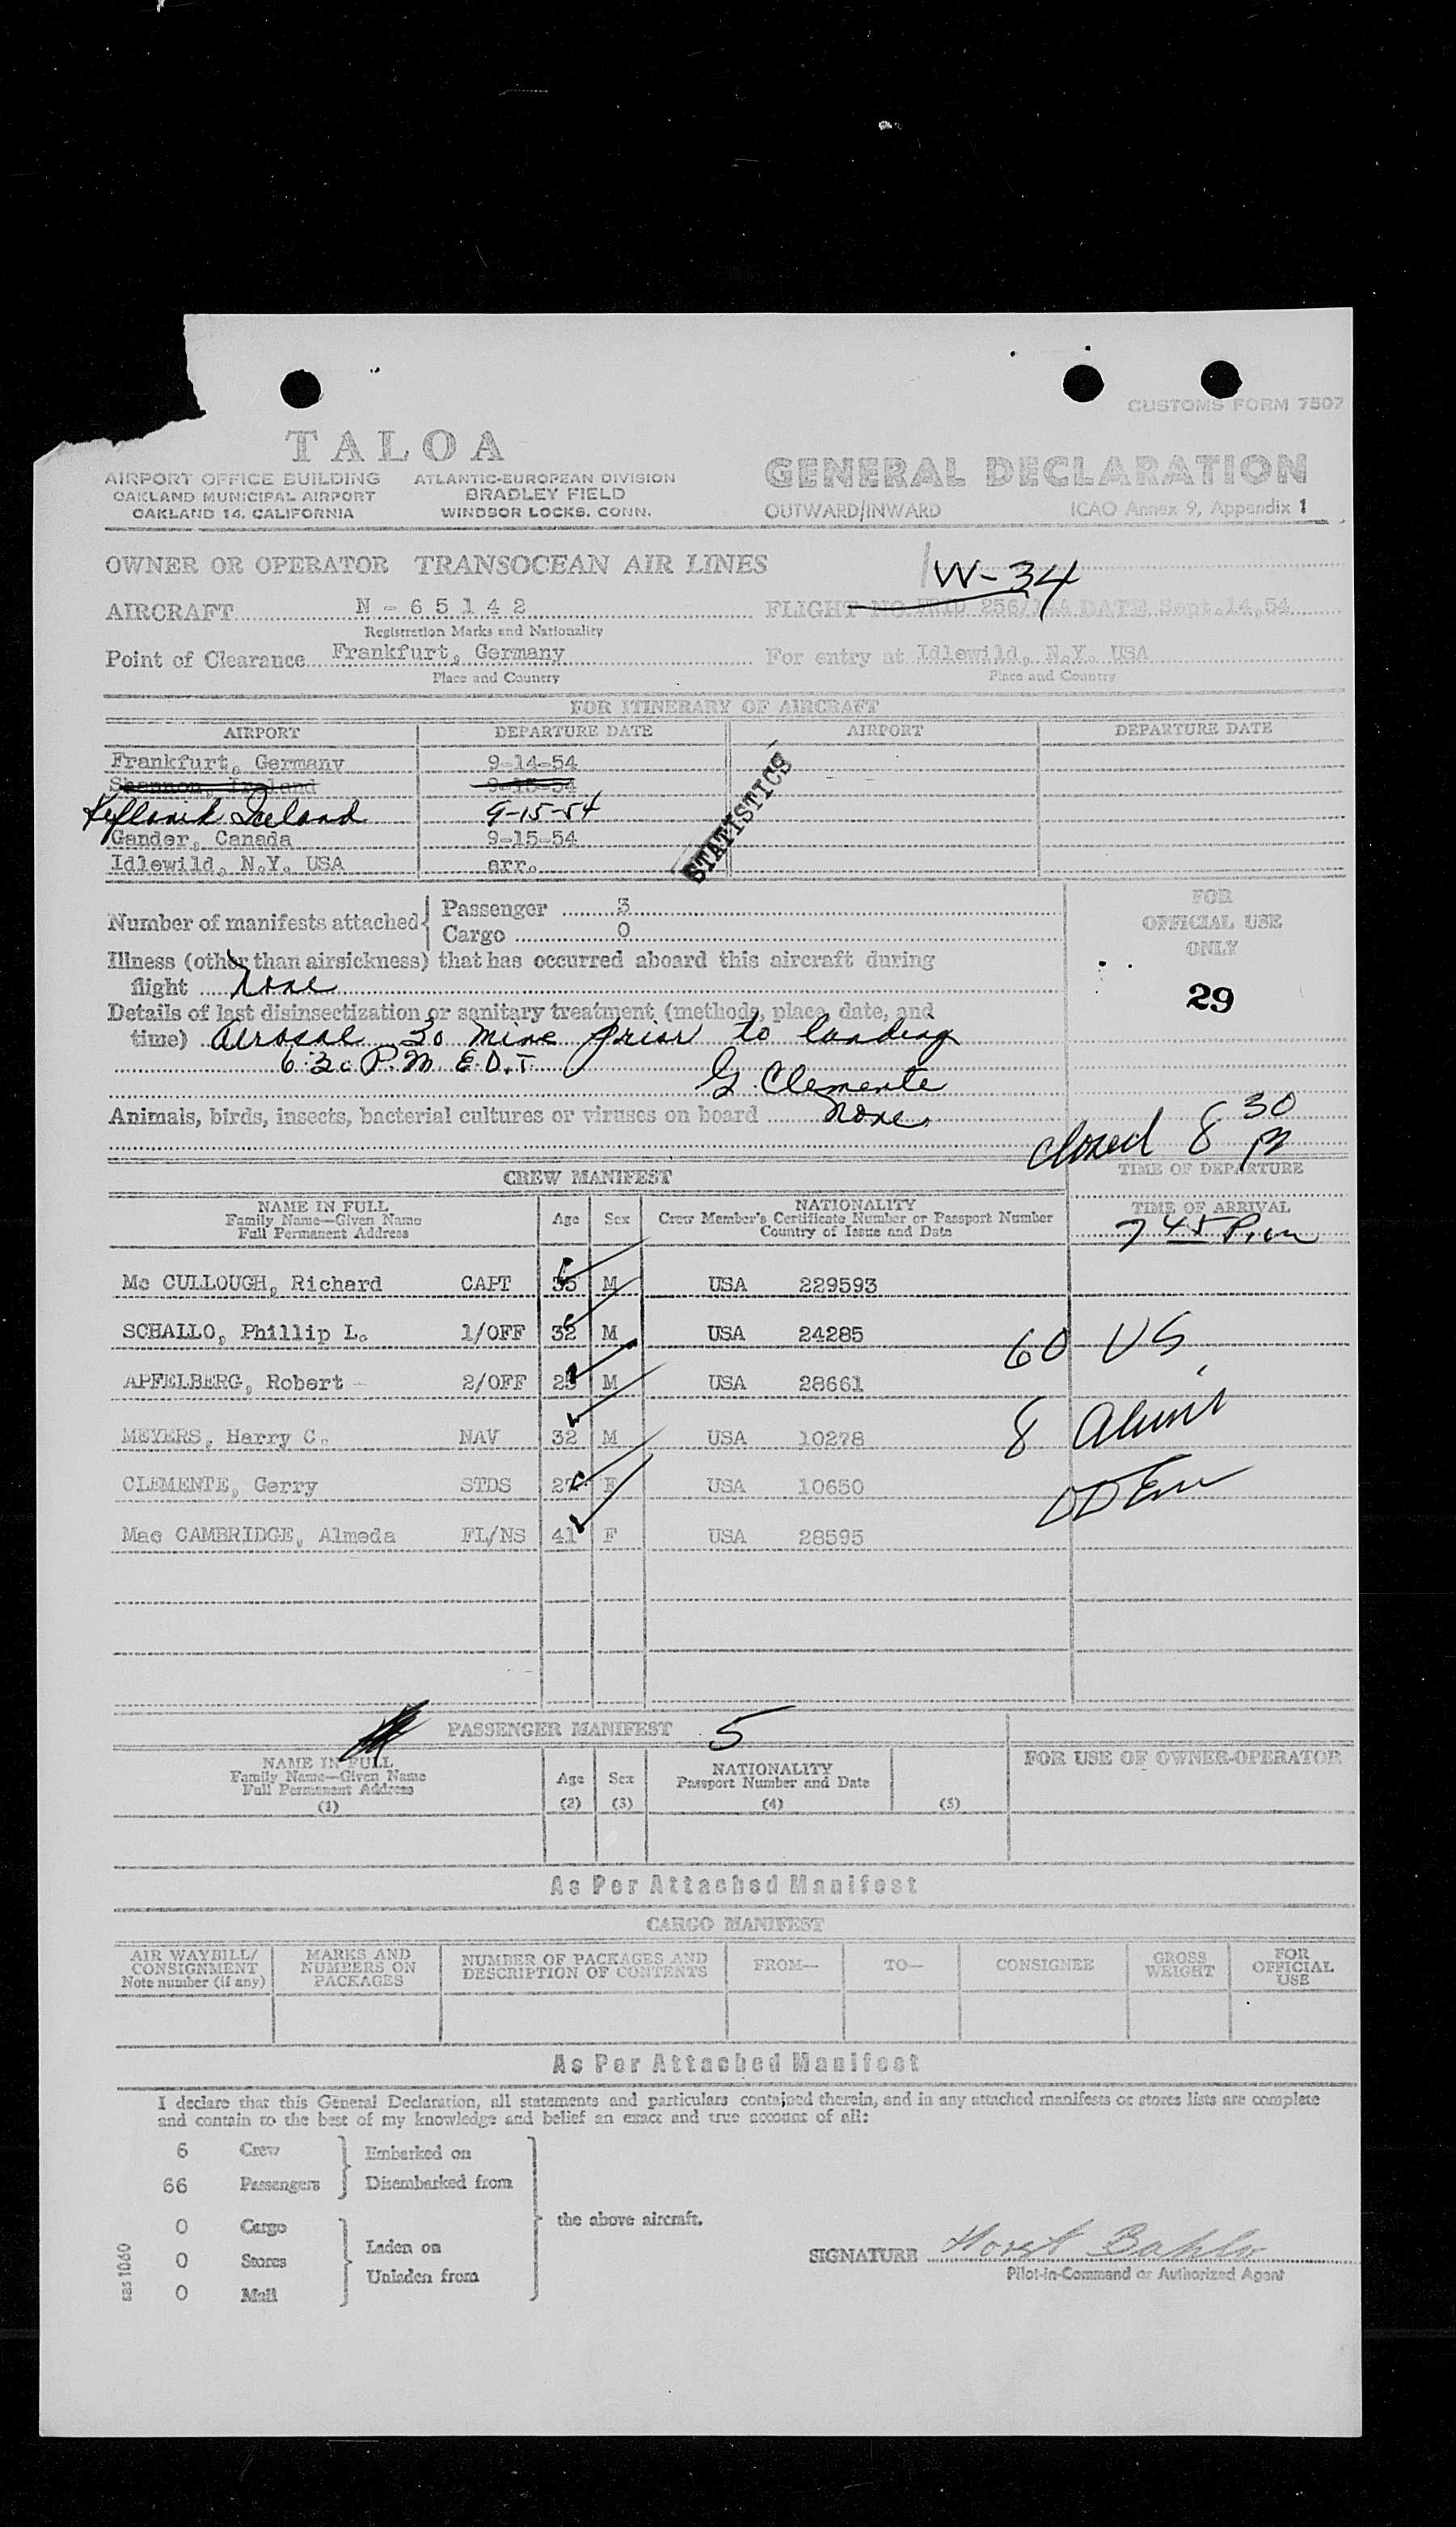 CUSTOMS FORM 7507
TALOA
AIRPORT OFFICE BUILDING
OAKLAND MUNICIPAL AIRPORT
OAKLAND 14, CALIFORNIA
ATLANTIC-EUROPEAN DIVISION
BRADLEY FIELD
WINDSOR LOCKS, CONN.
GENERAL DECLARATION
OUTWARD/INWARD ICAO Annex 9, Appendix 1
OWNER OR OPERATOR TRANSOCEAN AIR LINES
W-34
AIRCRAFT N-65142
Registration Marks and Nationality
FLIGHT NO. 256/ DATE Sept. 14, 54
Point of Clearance Frankfurt, Germany
Place and Country
For entry at Idlewild, N.Y. USA
Place and Country
FOR ITINERARY OF AIRCRAFT
AIRPORT DEPARTURE DATE AIRPORT DEPARTURE DATE
Frankfurt, Germany 9-14-54
Shannon, Ireland 9-15-54
Keflavik Iceland 9-15-54
Gander, Canada 9-15-54
Idlewild, N.Y. USA arr.
STATISTICS
Number of manifests attached
Passenger 3
Cargo 0
FOR
OFFICIAL USE
ONLY
29
Illness (other than airsickness) that has occurred aboard this aircraft during
flight None
Details of last disinsectization or sanitary treatment (methods, place, date, and
time) Aerosal 30 mins prior to landing
6:30 P.M. E.D.T.
G. Clemente
Animals, birds, insects, bacterial cultures or viruses on board None
closed 8 30
TIME OF DEPARTURE
TIME OF ARRIVAL
7 45 P.m
CREW MANIFEST
NAME IN FULL
Family Name—Given Name
Full Permanent Address
Age
Sex
NATIONALITY
Crew Member's Certificate Number or Passport Number
Country of Issue and Date
Mc CULLOUGH, Richard CAPT 35 M USA 229593
SCHALLO, Phillip L. 1/OFF 32 M USA 24285
60 US
APFELBERG, Robert 2/OFF M USA 28661
MEYERS, Harry C. NAV 32 M USA 10278
8 Aliens
CLEMENTE, Gerry STDS 27 F USA 10650
Mac CAMBRIDGE, Almeda FL/NS 41 F USA 28595
PASSENGER MANIFEST 5
NAME IN FULL
Family Name—Given Name
Full Permanent Address
(1)
Age
(2)
Sex
(3)
NATIONALITY
Passport Number and Date
(4)
(5)
FOR USE OF OWNER-OPERATOR
As Per Attached Manifest
CARGO MANIFEST
AIR WAYBILL/
CONSIGNMENT
Note number (if any)
MARKS AND
NUMBERS ON
PACKAGES
NUMBER OF PACKAGES AND
DESCRIPTION OF CONTENTS
FROM—
TO—
CONSIGNEE
GROSS
WEIGHT
FOR
OFFICIAL
USE
As Per Attached Manifest
I declare that this General Declaration, all statements and particulars contained therein, and in any attached manifests or stores lists are complete
and contain to the best of my knowledge and belief an exact and true account of all:
6 Crew
66 Passengers
Embarked on
Disembarked from
0 Cargo
0 Stores
0 Mail
Laden on
Unladen from
the above aircraft.
SIGNATURE Horst Bahlo
Pilot-in-Command or Authorized Agent
sas 1060